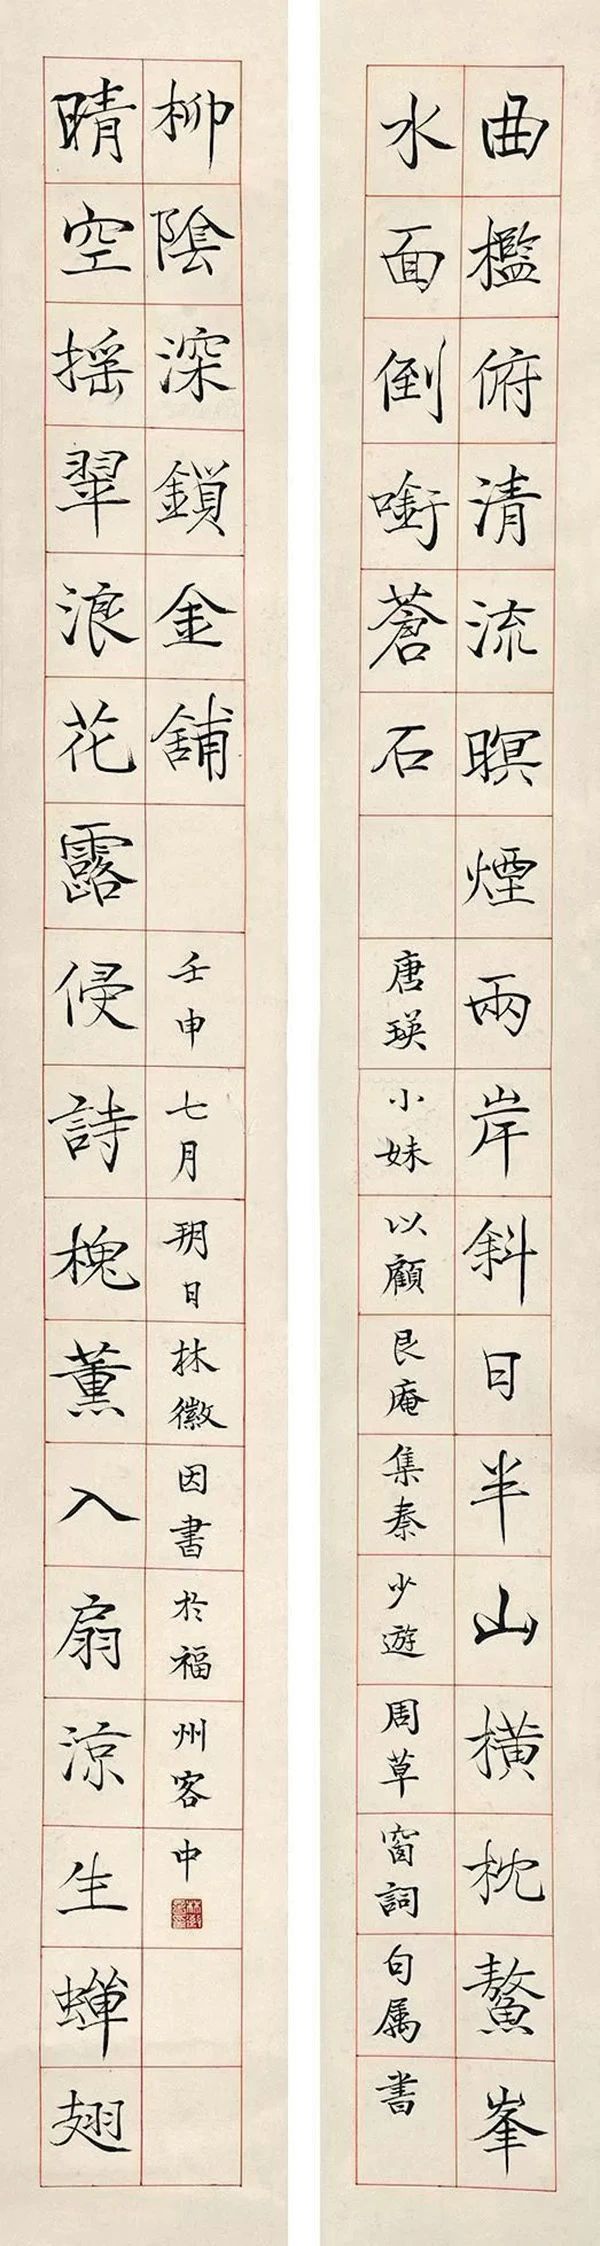 曲檻俯清流暝煙兩岸斜日半山橫枕鰲峯
水面倒㘅蒼石
唐瑛小妹以顧艮庵集秦少遊周草窗詞句属書
晴空搖翠浪花露侵詩槐薰入扇涼生蟬翅
柳陰深鎖金舖
壬申七月朔日林徽因書於福州客中